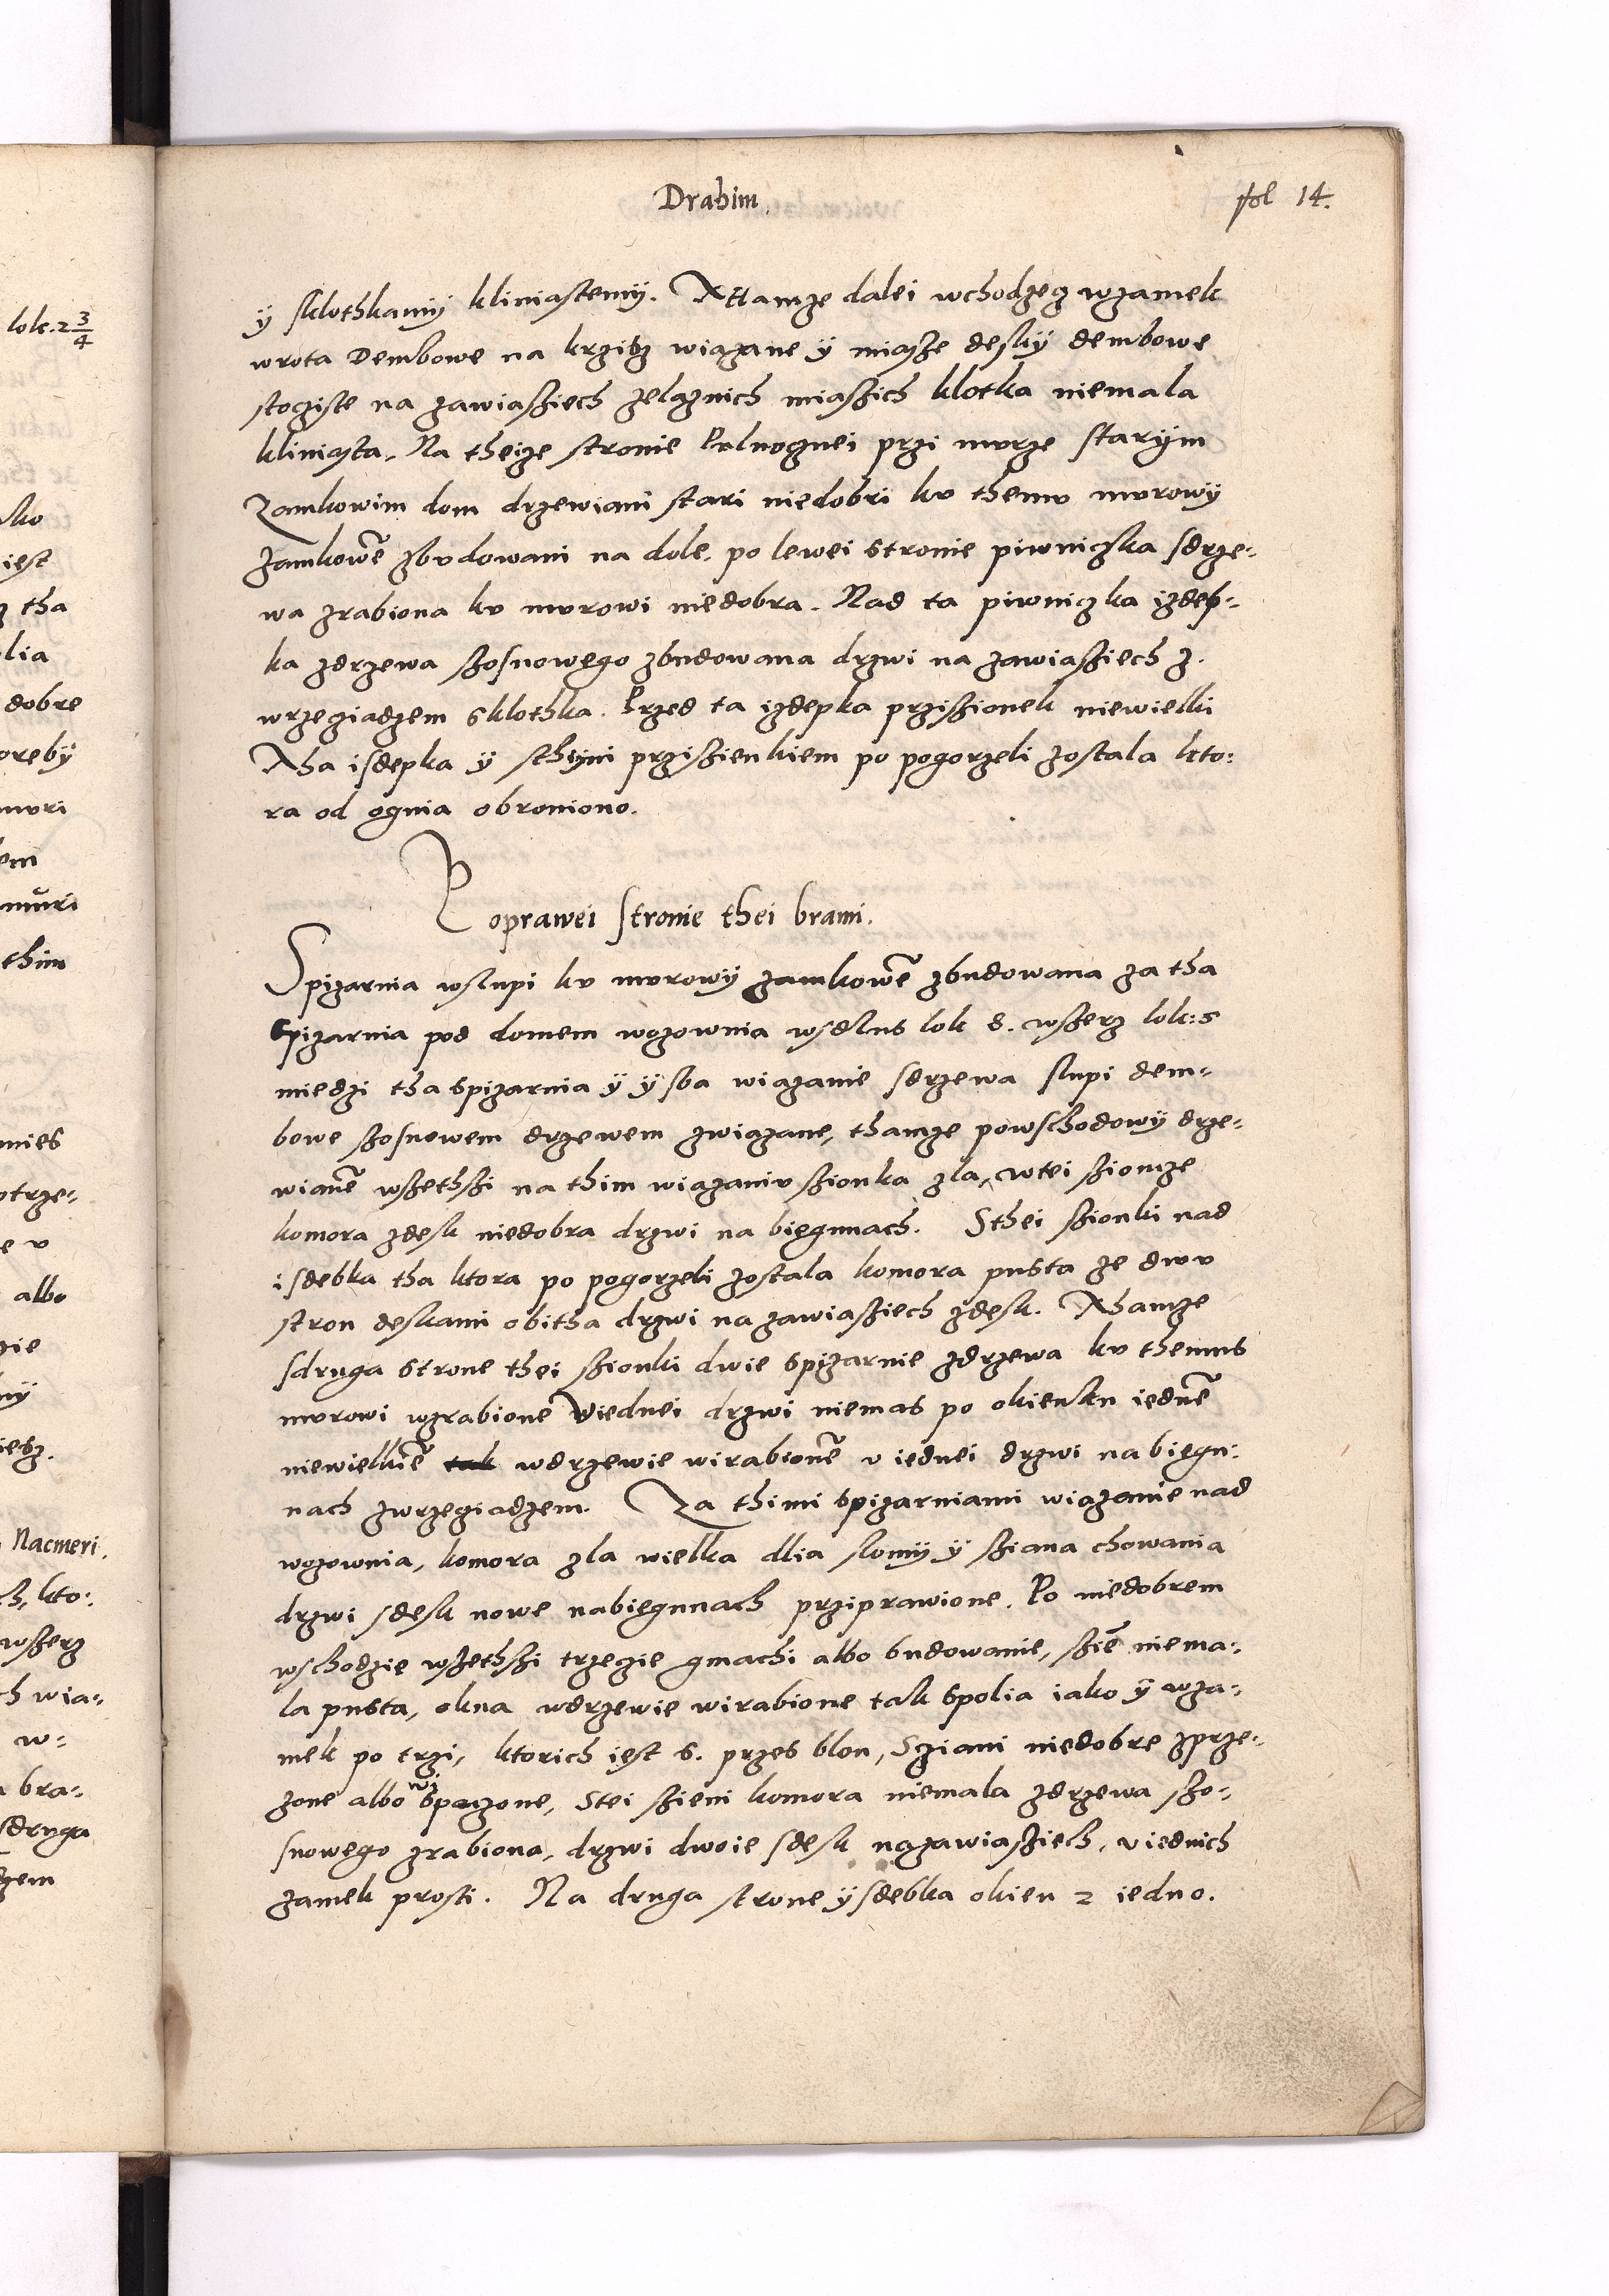 Drahim
fol 14.
ÿ sklothkamÿ kliniastemÿ. Attamże dalei wchodzecz wzamek
wrota Dembowe na krzisz wiązane ÿ miąsze deskÿ dembowe
stocziste na zawiassiech zelaznich miassich klotka niemala
kliniasta, Na theize stronie Pulnocznei przi murze starÿm
Zamkowim dom drzewiani stari niedobri ku themu murowÿ
zamkowē zbudowani na dole, po lewei stronie piwniczka sdrze-
wa zrabiona ku murowi niedobra. Nad ta piwniczka izdep-
ka zdrzewa szosnowego zbudowana drzwi na zawiassiech z.
wrzeciadzem sklothka. Przed ta izdepka przissionek niewielki
Tha isdepka ÿ sthÿm przissienkiem po pogorzeli zostala kto:
ra od ognia obroniono.
Poprawei stronie thei brami.
Spizarnia wslupi ku murowÿ zamkowē zbudowana za tha
spizarnia pod domem wozownia wsdlus lok 8. wsserz lok: 5
miedzi tha spizarnia ÿ ÿsba wiazanie sdrzewa slupi dem-
bowe szosnowem drzewem zwiazane, thamze powschodowÿ drze-
wianē wssethssi na thim wiazaniu ssionka zla, wtei ssiomze
komora zdesk niedobra drzwi na biegunach. Sthei ssionki nad
isdebka tha ktora po pogorzeli zostala komora pusta ze dwu
stron deskami obitha drzwi na zawiassiech zdesk. Thamze
sdruga strone thei ssionki dwie spizarnie zdrzewa ku themus
murowi wzrabione Uiednei drzwi niemas po okienku iednē
niewielkiē wdrzewie wirabionē u iednei drzwi na biegu:
nach zwrzeciadzem. Za thimi spizarniami wiazanie nad
wozownia, komora zla wielka dlia slomÿ ÿ ssiana chowania
drzwi sdesk nowe nabiegunach przÿprawione. Po niedobrem
wschodzie wssethssi trzecie gmachi albo budowanie, ssiē niema:
la pusta, okna wdrzewie wirabione tak spolia iako ÿ wza-
mek po trzi, ktorich iest 6. przes blon, Scziani niedobre zprze-
zone albo wispaczone, Stei ssieni komora niemala zdrzewa szo-
snowego zrabiona, drzwi dwoie sdesk nazawiassiech, uiednich
zamek prosti. Na druga strone ÿsdebka okien 2 iedno.